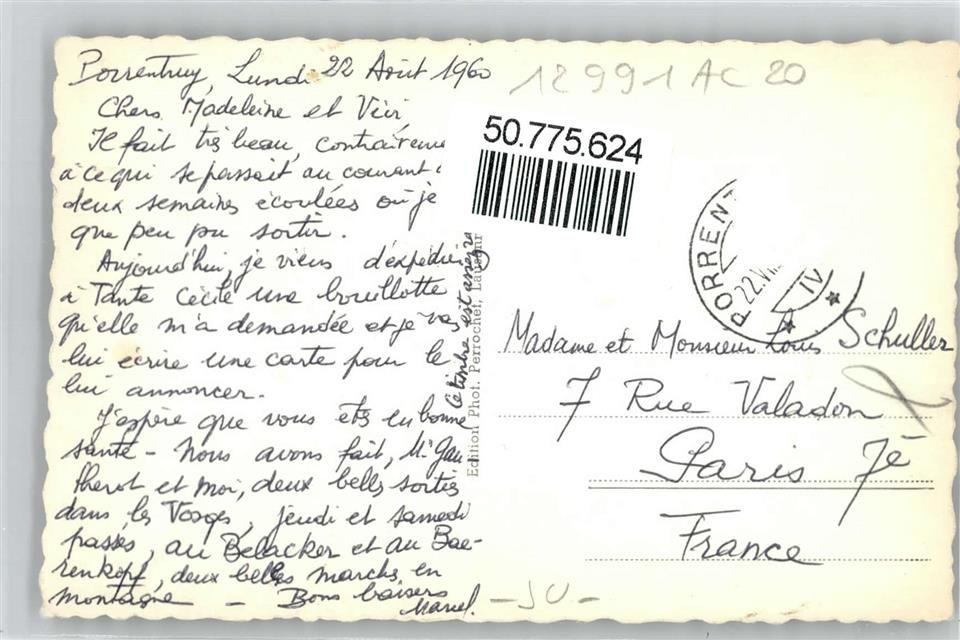 Porrentruy, Lundi 22 Août 1960
Chers Madeleine et
Il fait très beau, contraireme
à ce qui se passait au courant
deux semaines écoulées où je
que peu pu sortir.
Aujourd'hui, je viens d'expédier
à Tante Cécile une bouillotte
qu'elle m'a demandée et je vais
lui écrire une carte pour le
lui annoncer.
J'espère que vous êtes en bonne
santé - Nous avons fait, Mr Gau
therot et moi, deux belles sorties
dans les Vosges, jeudi et samedi
passés, au Belacker et au Bae-
renkopf, deux belles marches en
montagne - Bons baisers
Marcel.
Ce timbre est
Edition Phot. Perrochet, Lausann
12991 AC 20
50.775.624
PORRENT
22.VI
IV
Madame et Monsieur Louis Schuller
7 Rue Valadon
Paris 7è
France
- JU -